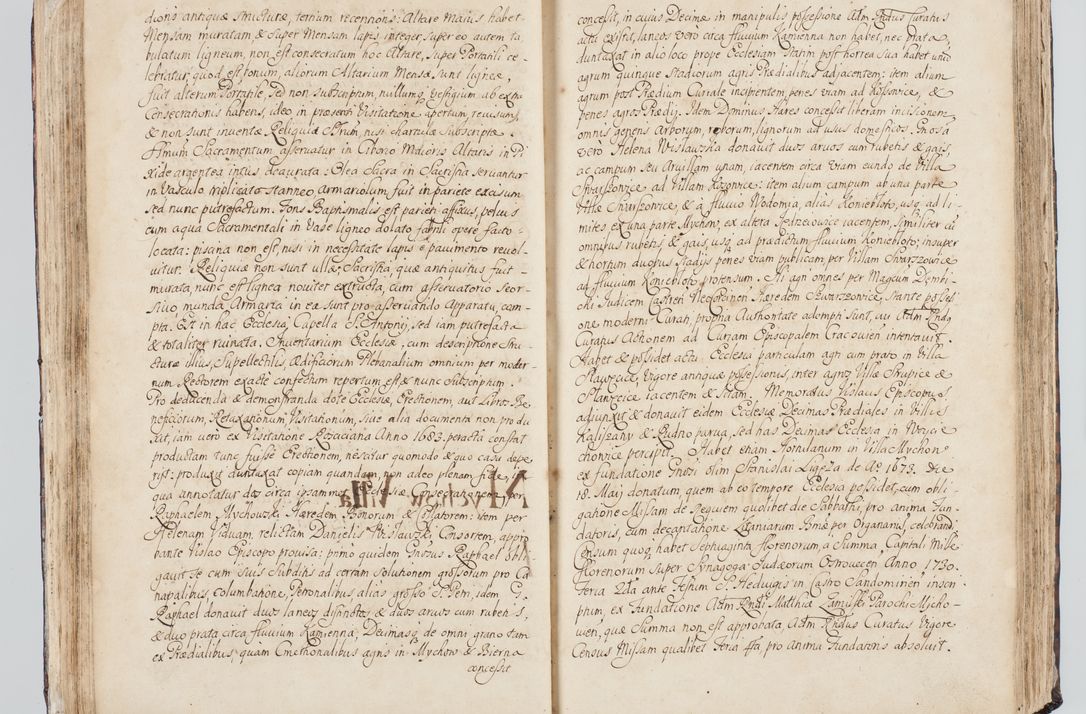 dionis antiquæ structuræ, tertium recentioris: Altare Maius habet
Mensam muratam & super Mensam lapis integer, super eo autem ta,
bulatum ligneum, non est consecratum hoc Altare, super Portatili ce-
lebratur, quod est bonum, aliorum Altarium Mensæ sunt ligneæ,
fuit alterum Portatile, sed non subscriptum, nullumq; vestigium ab extra
Consecrationis habens, ideo in præsenti Visitatione apertum, revisum,
& non sunt inventæ Reliquiæ Strum, nisi chartulæ subscriptæ.
SSmum Sacramentum asservatur in Ciborio Maioris Altaris in Pi
xide argentea intus deaurata: Olea Sacra in Sacristia servantur
in Vasculo triplicato stanneo, armariolum, fuit in pariete excisum
sed nunc putrefactum. Fons Baptismalis est parieti affixus, pelvis
cum aqua Sacramentali in Vase ligneo dolato fabrili opere facto
locata: piscina non est, nisi in necessitate lapis è pavimento revol-
vitur. Reliquiæ non sunt ullæ; Sacristia, quæ antiquitus fuit
murata, nunc est lignea noviter extructa, cum asservatorio Seor-
sivo munda, Armaria in ea sunt pro asservando Apparatu, com
pta. Est in hac Ecclesia, Capella S. Antonij, sed iam putrefacta
& totaliter ruinata. Inventarium Ecclesiæ, cum descriptione Stru-
cturæ illius, Supellectilis, Ædificiorum Plebanalium omnium per moder-
num Rectorem exactè confectum repertum est & nunc subscriptum.
Pro deducenda & demonstranda dote Ecclesiæ, Erectionem, aut Libros Be-
neficiorum, Retaxationum, Visitationum, sive alia documenta non produ
xit, iam vero ex Visitatione Rozaciana Anno 1683. peracta constat
productam tunc fuisse Erectionem, nescitur quomodo & quo casu depe
riit: produxit duntaxat copiam quandam, non adeo plenam fidei, in
qua annotatur dos circa ipsammet Ecclesiæ Consecrationem per
Raphaelem Mychowski Hæredem Bonorum & Collatorem: item per
Helenam Viduam, relictam Danielis Wislawski, Consortem, appro
bante Vislao Episcopo provisa: primo quidem Gnosus Raphael obli
gavit se cum suis Subditis ad certam solutionem grossorum pro Ca
napalibus, Columbatione, Personalibus, alias grosso S. Petri, idem G.
Raphael donavit duos laneos distinctos & duos arvos cum rubetis,
& duo prata circa fluvium Kamienna, Decimasq; de omni grano tam
ex Prædialibus, quam Cmethonalibus agris in Mychow & Bierna
concessit
concessit, in cuius Decimæ in manipulis possessione Adm Rndus Curatus
actu existit, laneos vero circa fluvium Kamienna non habet, nec prata,
duntaxat in alio loco prope Ecclesiam statim post horrea sua habet unū
agrum quinque Stadiorum agris Prædialibus adjacentem: item alium
agrum post Prædium Curiale incipientem penes viam ad Kossowice, &
penes agros Prædij. Idem Dominus Hæres concessit liberam incisionem
omnis generis Arborum, roborum, lignorum ad usus domesticos. Gnosa
verò Helena Wislawska donavit duos arvos cum rubetis & gais,
ac campum seu Arvillam unam, iacentem circa viam eundo de Villa
Swarszowice ad Villam Kozowice: item alium campum ab una parte
Villæ Swarszowice, & à fluvio Wodomia, alias Koniebloto, usq; ad li-
mites ex una parte Mychow, ex altera Jedrzeiowice iacentem, similiter cū
omnibus rubetis & gais, usq; ad prædictum fluvium Koniebloto; insuper
& hortum duobus Stadijs penes viam publicam per Villam Swarszowice
ad fluvium Konieblota protensum. Hi agri omnes per Magcum Dembi-
cki Judicem Castren Neoscionen Hæredem Szwarszowice, stante posses
one moderni Curati, propria Authoritate adempti sunt, uti Adm Rnd
Curatus Actionem ad Curiam Episcopalem Cracovien intentavit.
Habet & possidet actu Ecclesia particulam agri cum prato in Villa
Stawzcice, vigore antiquæ possessionis, inter agros Villæ Skrapice &
Stanzeice iacentem & sitam. Memoratus Vislaus Episcopus,
adjunxit & donavit eidem Ecclesiæ Decimas Prædiales in Villis
Kaliszany & Rudno parva, sed has Decimas Ecclesia in Woycie
chowice percipit. Habet etiam Hortulanum in Villa Mychow
ex fundatione Gnosi olim Stanislai Ligęza de Ao 1673. Die
18. Maij donatum, quem ab eo tempore Ecclesia possidet, cum obli-
gatione Missam de Requiem quolibet die Sabbathi, pro anima Fun-
datoris, cum decantatione Litaniarum Bmæ per Organarij, celebrand.
Censum quoq; habet Septuaginta florenorum, à Summa, Capital: Mille
florenorum super Synagoga Judæorum Ostrovecen Anno 1730.
Feria 2da ante Festum S. Hedvigis in Castro Sandomirien inscri
ptum, ex Fundatione Adm Rndi Matthiæ Zamilski Parochi Mycho-
vien, quæ Summa non est approbata. Adm Rndus Curatus vigore
Census Missam qualibet Feria 4ta pro anima Fundatoris absolvit.